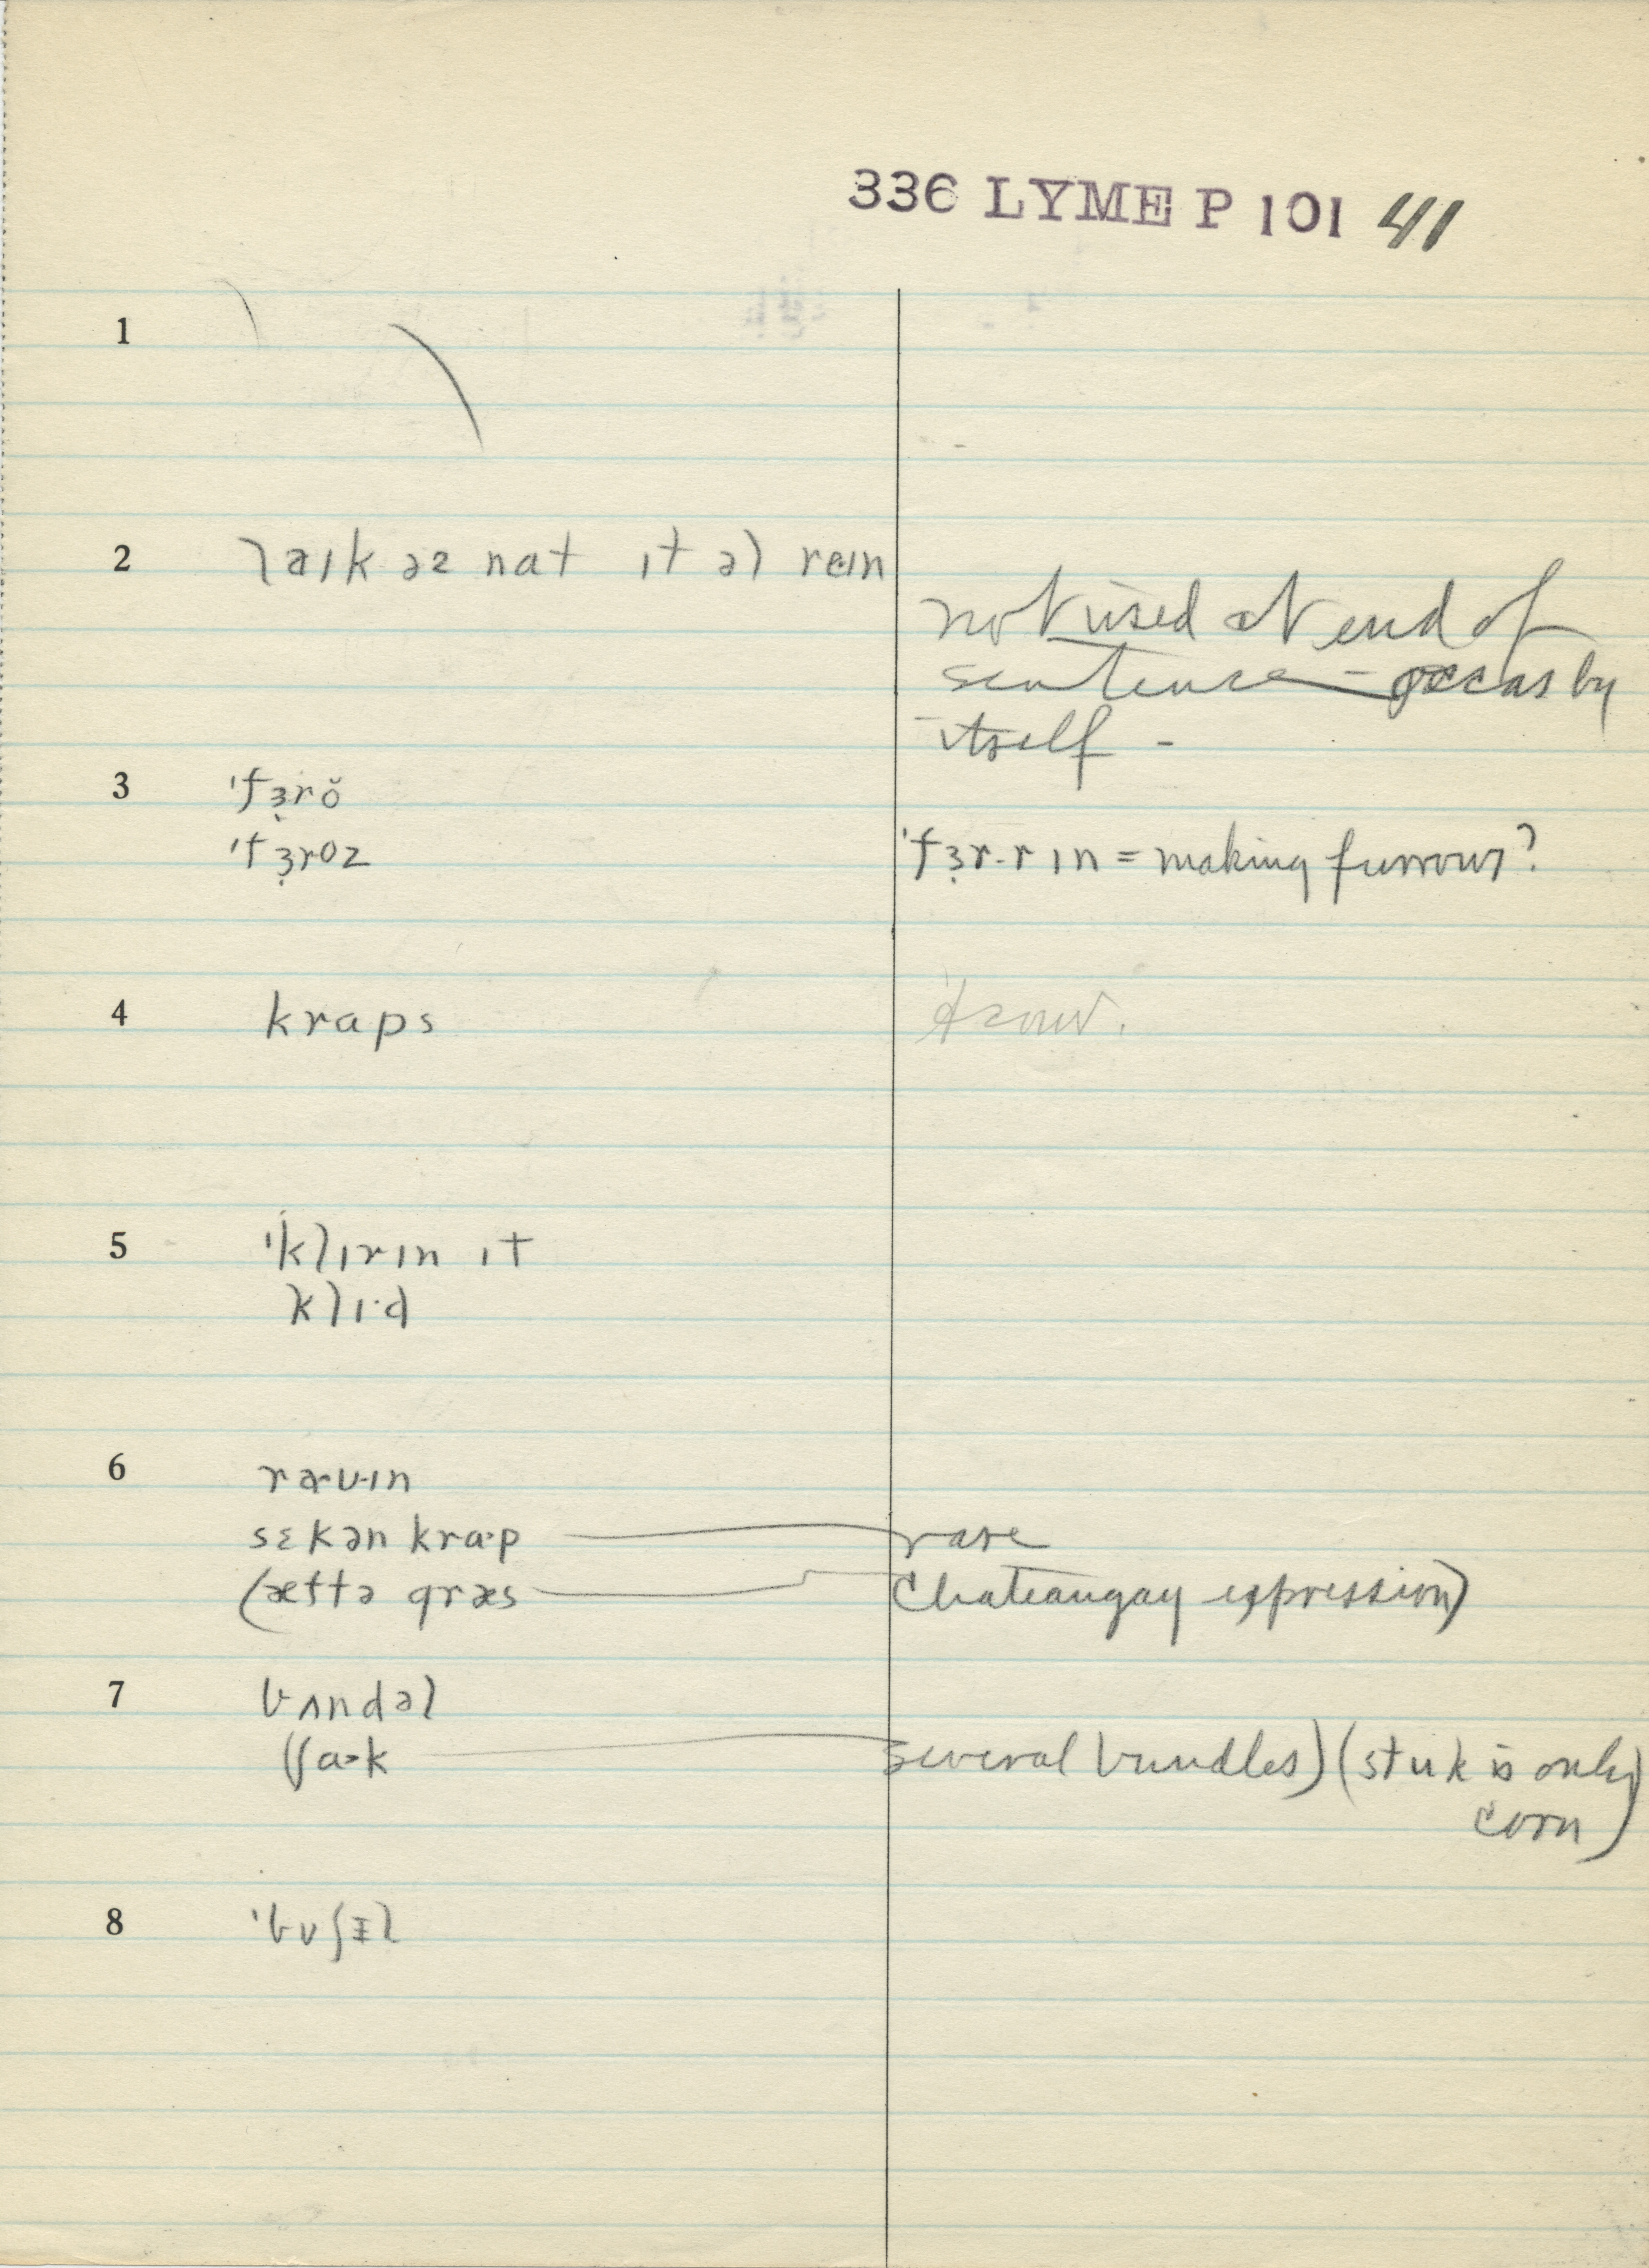 336 LYME P 101 41
1
2 laɪk əz nat ɪt əl reɪn
not used at end of
sentence – occas by
itself –
3 'fɜ̣rŏ
'fɜ̣roz 'fɜ̣r-rɪn = making furrows?
4 kraps
5 'klɪrɪn ɪt
klɪ·d
6 ræʊ·ɪn
sɛkən kra·p rare
(æftə græs Chateaugay expression)
7 bʌndəl
(ʃa>k several bundles) (stuk is only
corn)
8 'bʊʃɪl